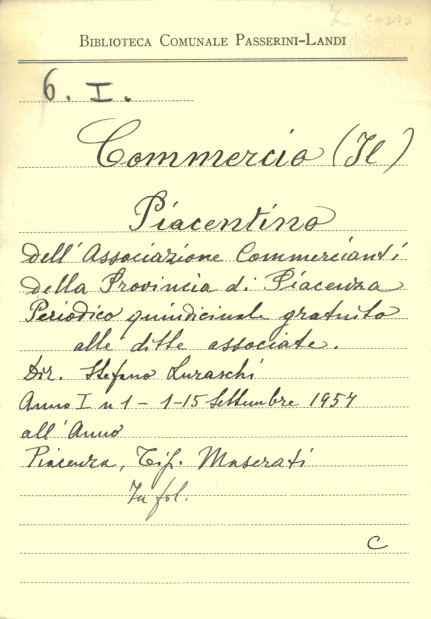 BIBLIOTECA COMUNALE PASSERINI-LANDI
6. I.
Commercio (Il)
Piacentino
dell'Associazione Commercianti
della Provincia di Piacenza
Periodico quindicinale gratuito
alle ditte associate.
Dir. Stefano Luraschi
Anno I n 1 - 1-15 Settembre 1957
all'Anno
Piacenza, Tip. Maserati
In fol.
C